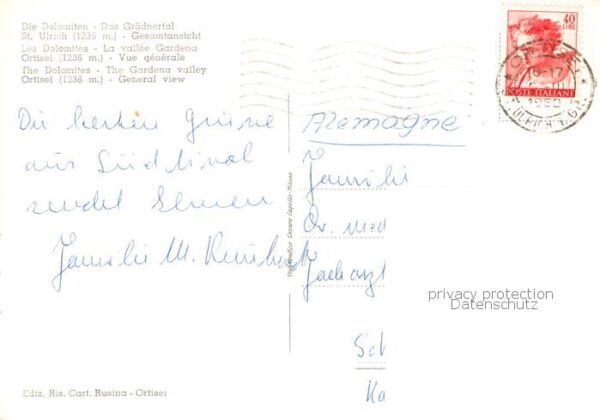 Die Dolomiten - Das Grödnertal
St. Ulrich (1236 m.) - Gesamtansicht
Les Dolomites - La vallée Gardena
Ortisei (1236 m.) - Vue générale
The Dolomites - The Gardena valley
Ortisei (1236 m.) - General view
Die besten Grüsse
aus Südtirol
sendet Ihnen
Familie M.
40
LIRE
POSTE ITALIANE
ORTISEI
16-17
ST. ULRICH
Alemagne
Familie
Dr. med
Facharzt
Sch
Ka
privacy protection
Datenschutz
Ediz. Ris. Cart. Rusina - Ortisei